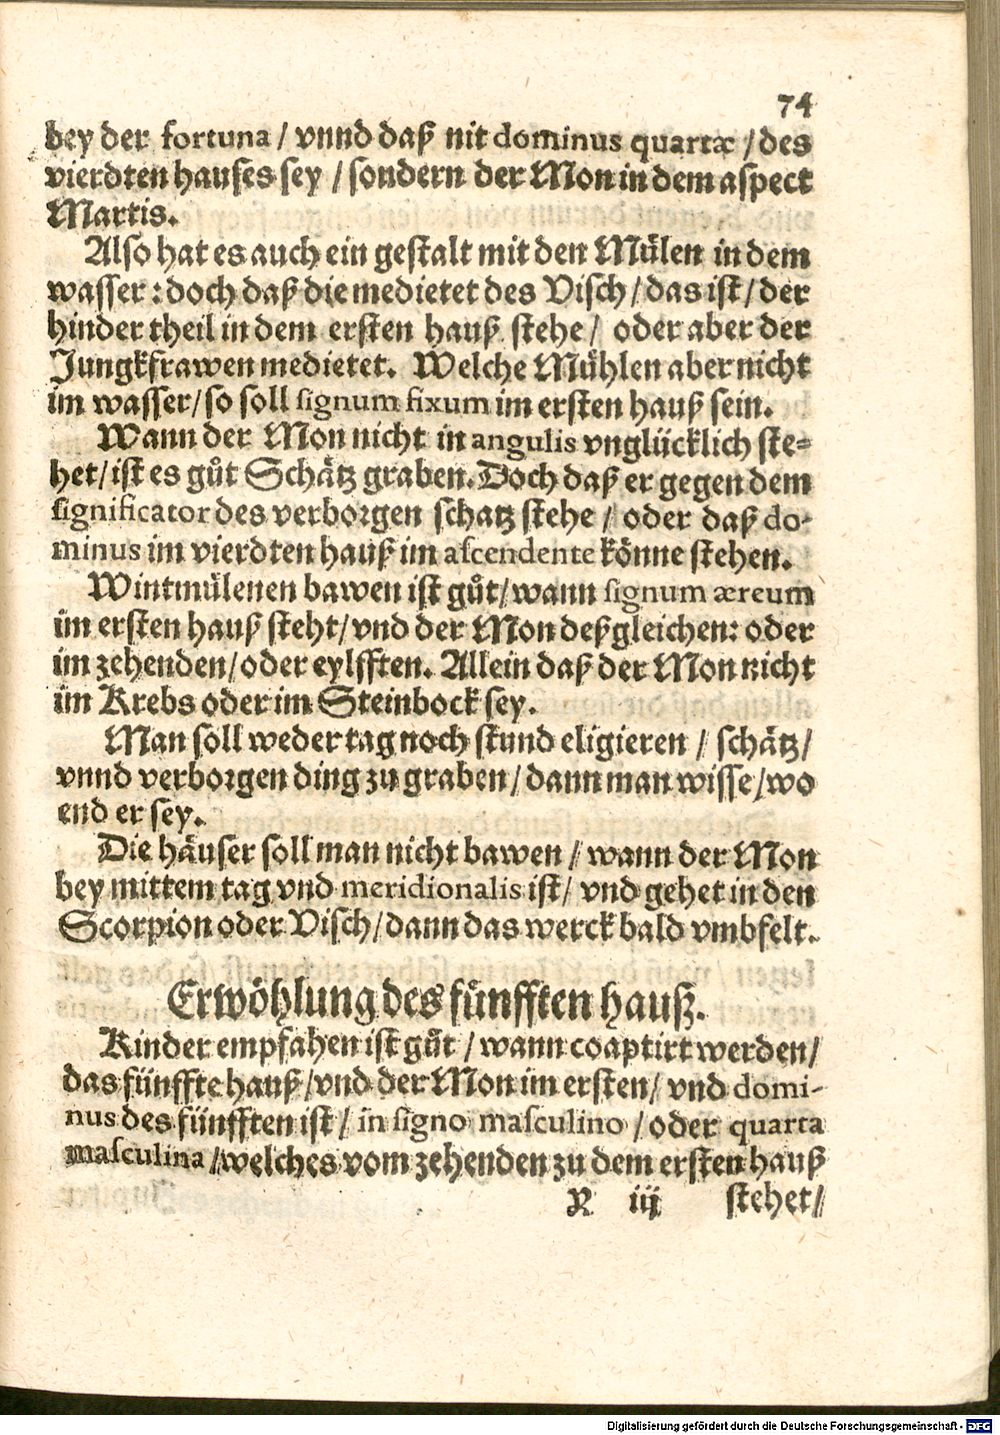 74
bey der fortuna / vnnd daß nit dominus quartæ / des
vierdten hauses sey / sondern der Mon in dem aspect
Martis.
Also hat es auch ein gestalt mit den Mülen in dem
wasser : doch daß die medietet des Visch / das ist / der
hinder theil in dem ersten hauß stehe / oder aber der
Jungkfrawen medietet. Welche Mühlen aber nicht
im wasser / so soll signum fixum im ersten hauß sein.
Wann der Mon nicht in angulis vnglücklich ste⸗
het / ist es gůt Schätz graben. Doch daß er gegen dem
significator des verborgen schatz stehe / oder daß do-
minus im vierdten hauß im ascendente könne stehen.
Wintmülenen bawen ist gůt / wann signum æreum
im ersten hauß steht / vnd der Mon deßgleichen: oder
im zehenden / oder eylfften. Allein daß der Mon nicht
im Krebs oder im Steinbock sey.
Man soll weder tag noch stund eligieren / schätz /
vnnd verborgen ding zu graben / dann man wisse / wo
end er sey.
Die häuser soll man nicht bawen / wann der Mon
bey mittem tag vnd meridionalis ist / vnd gehet in den
Scorpion oder Visch / dann das werck bald vmbfelt.
Erwöhlung des fünfften hauß.
Kinder empfahen ist gůt / wann coaptirt werden /
das fünffte hauß / vnd der Mon im ersten / vnd domi-
nus des fünfften ist / in signo masculino / oder quarta
masculina / welches vom zehenden zu dem ersten hauß
R iij stehet /
Digitalisierung gefördert durch die Deutsche Forschungsgemeinschaft - DFG